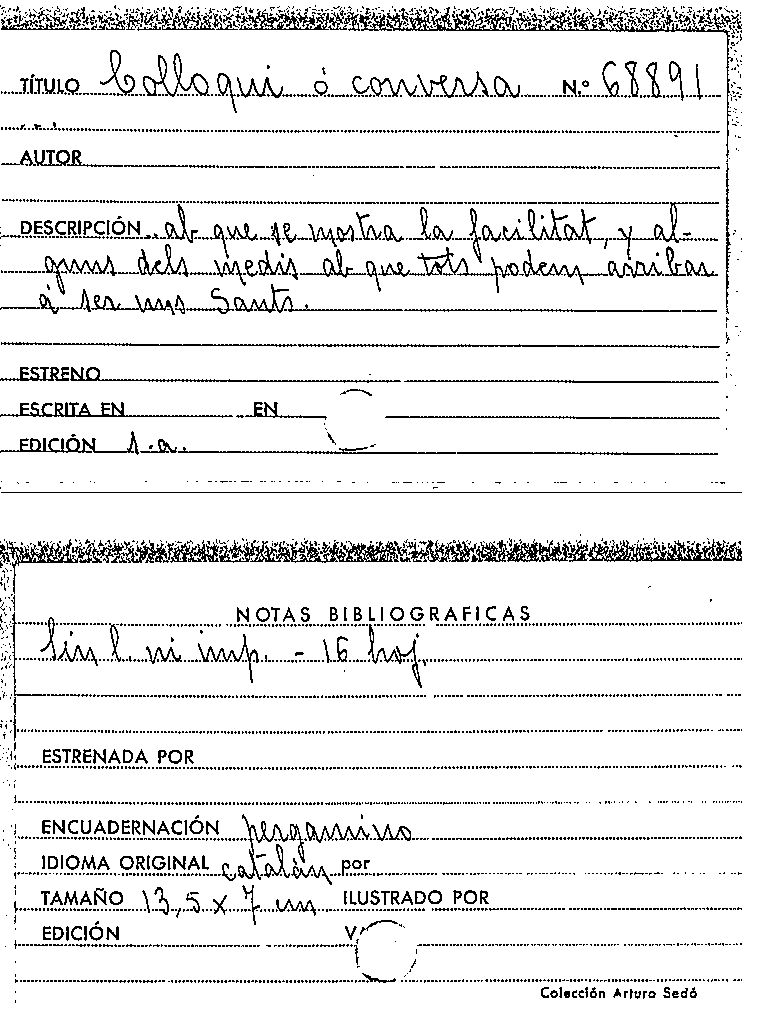 TÍTULO Colloqui ó conversa N.º 68891
...
AUTOR
DESCRIPCIÓN ab que se mostra la facilitat, y al-
guns dels medis ab que tots podem arribar
á ser uns Sants.
ESTRENO
ESCRITA EN EN
EDICIÓN s.a.
NOTAS BIBLIOGRAFICAS
Sin l. ni imp. - 16 hoj.
ESTRENADA POR
ENCUADERNACIÓN pergamino
IDIOMA ORIGINAL catalán por
TAMAÑO 13,5 x 7 cm ILUSTRADO POR
EDICIÓN
Colección Arturo Sedó